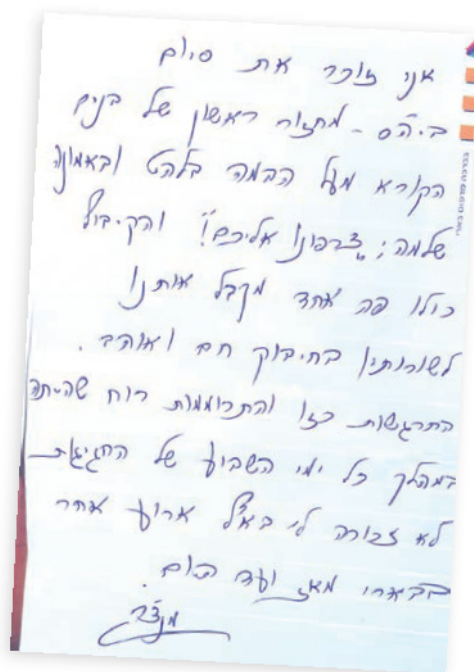 אני זוכר את סיום
בי"הס - מחזור ראשון של בנים
הקורא מעל הבמה בלהט ובאמונה
שלמה; "צרפונו אליכם!" והקיבוץ
כולו פה אחד מקבל אותנו
לשורותיו בחיבוק חם ואוהב.
התרגשות כזו והתרוממות רוח שהיתה
במהלך כל ימי השבוע של החגיגות
לא זכורה לי באף ארוע אחר
בבארי מאז ועד היום.